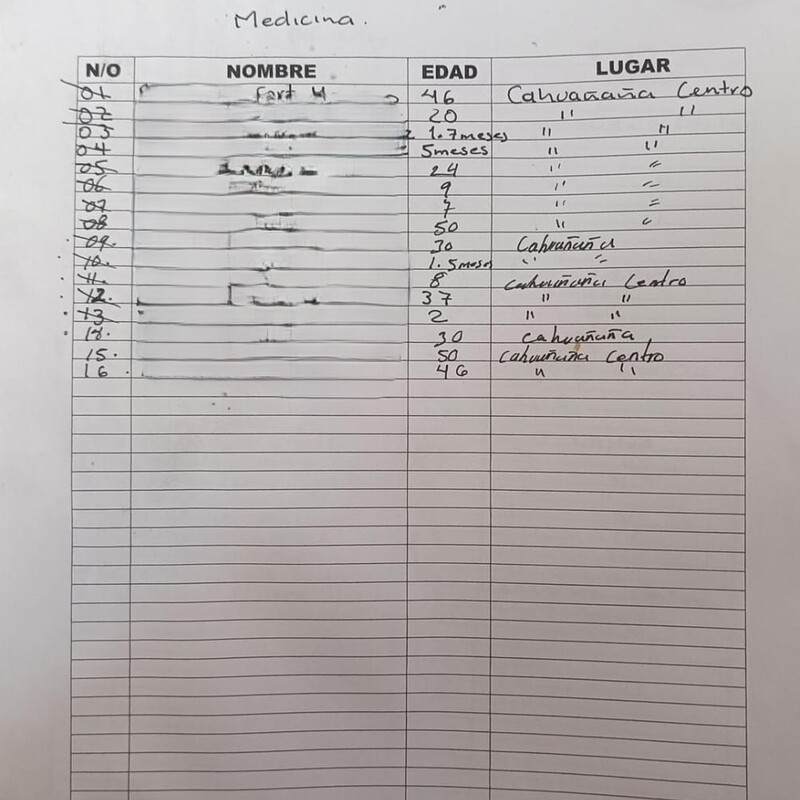 Medicina.
N/O NOMBRE EDAD LUGAR
01 46 Cahuañaña Centro
02 20 " "
03 1.7meses " "
04 5meses " "
05 24 " "
06 9 " "
07 7 " "
08 50 " "
09. 30 Cahuañaña
10. 1.5meses " "
11. 8 Cahuañaña Centro
12. 37 " "
13 2 " "
14. 30 Cahuañaña
15. 50 Cahuañaña Centro
16. 46 " "